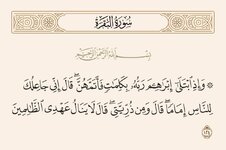 سُورَةُ البَقَرَةِ
بِسْمِ اللَّهِ الرَّحْمَٰنِ الرَّحِيمِ
۞ وَإِذِ ٱبْتَلَىٰٓ إِبْرَٰهِـۧمَ رَبُّهُۥ بِكَلِمَٰتٍ فَأَتَمَّهُنَّ ۖ قَالَ إِنِّى جَاعِلُكَ
لِلنَّاسِ إِمَامًا ۖ قَالَ وَمِن ذُرِّيَّتِى ۖ قَالَ لَا يَنَالُ عَهْدِى ٱلظَّٰلِمِينَ
١٢٤